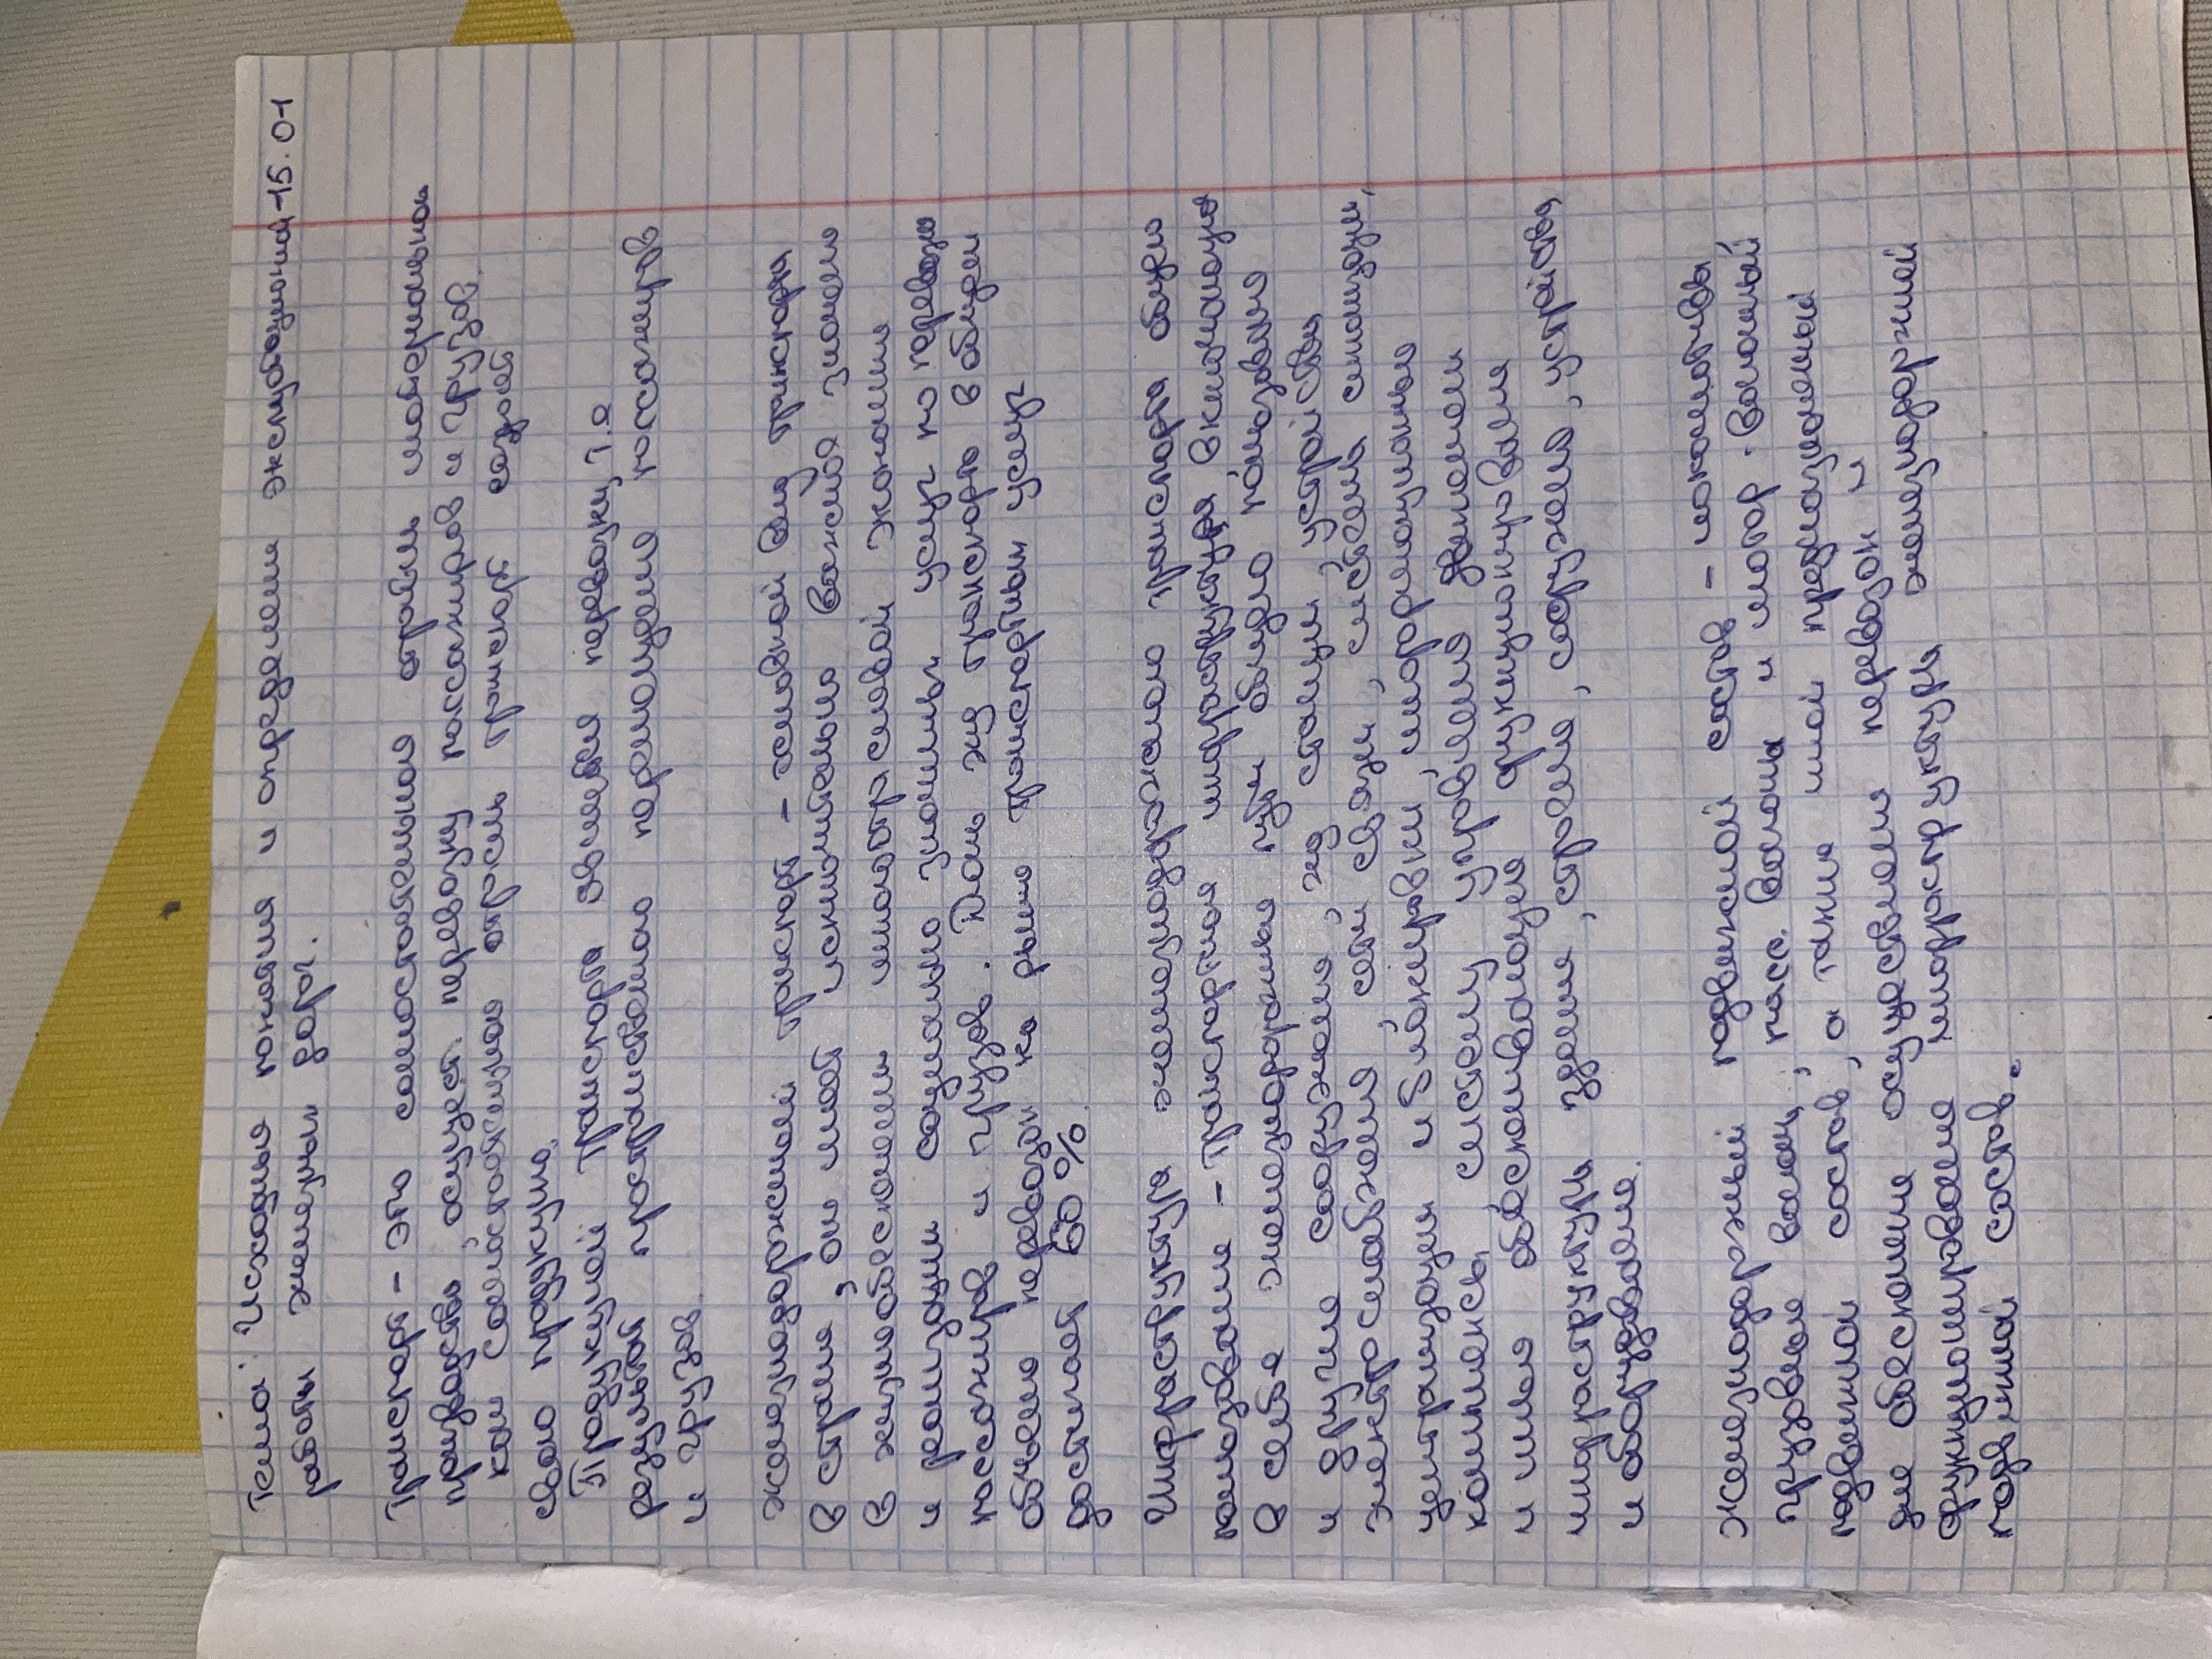 Тема: Исходные понятия и определени эксплуатационной 15.01
работы железных дорог.
Транспорт - это самостоятельная отрасль материальной
производства, осущест. перевозку пассажиров и грузов.
как самостоятельная отрасль транспорт создаёт
свою продукцию.
Продукцией транспорта является перевозки, т.е
результат пространственного перемещения пассажиров
и грузов.
Железнодорожный транспорт - основной вид транспорта
в стране, он имеет исключительно важное значение
в жизнеобеспечении многоотраслевой экономики
и реализации социально значимых услуг по перевозке
пассажиров и грузов. Доля жд транспорта в общем
объёме перевозки на рынке транспортных услуг
достигает 60 %.
Инфраструктура железнодорожного транспорта общего
пользования - транспортная инфраструктура включающая
в себя железнодорожные пути общего пользования
и другие сооружения, жд станции, устройства
электроснабжения, сети связи, системы сигнализации,
централизации и блокировки, информационные
комплексы, систему управления движением
и иные обеспечивающие функционирования
инфраструктуры здания, строения, сооружения, устройства
и оборудования.
Железнодорожный подвижной состав - локомотивы
грузовые вагоны, пасс. вагоны и мотор. вагонный
подвижной состав, а также иной предназначенный
для обеспечения осуществления перевозок и
функционирования инфраструктуры железнодорожный
подвижной состав.